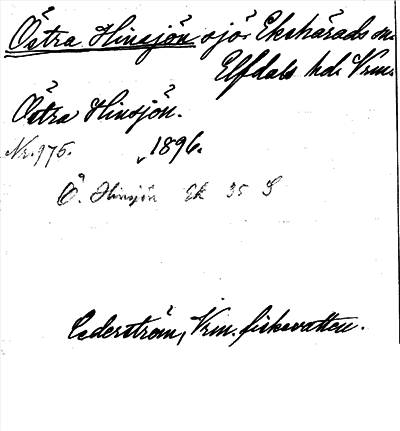 Östra Hinsjön sjö. Ekshärads sn.
Elfdals hd. Vrm.
Östra Hinsjön.
Nr. 975. 1896.
Ö. Hinsjön Ek 35 S
Cederström, Vrm. fiskevatten.